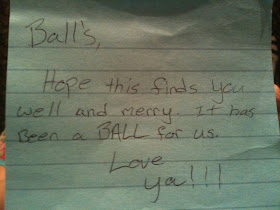 Ball's,
Hope this finds you
well and merry. It has
Been a BALL for us.
Love
ya!!!